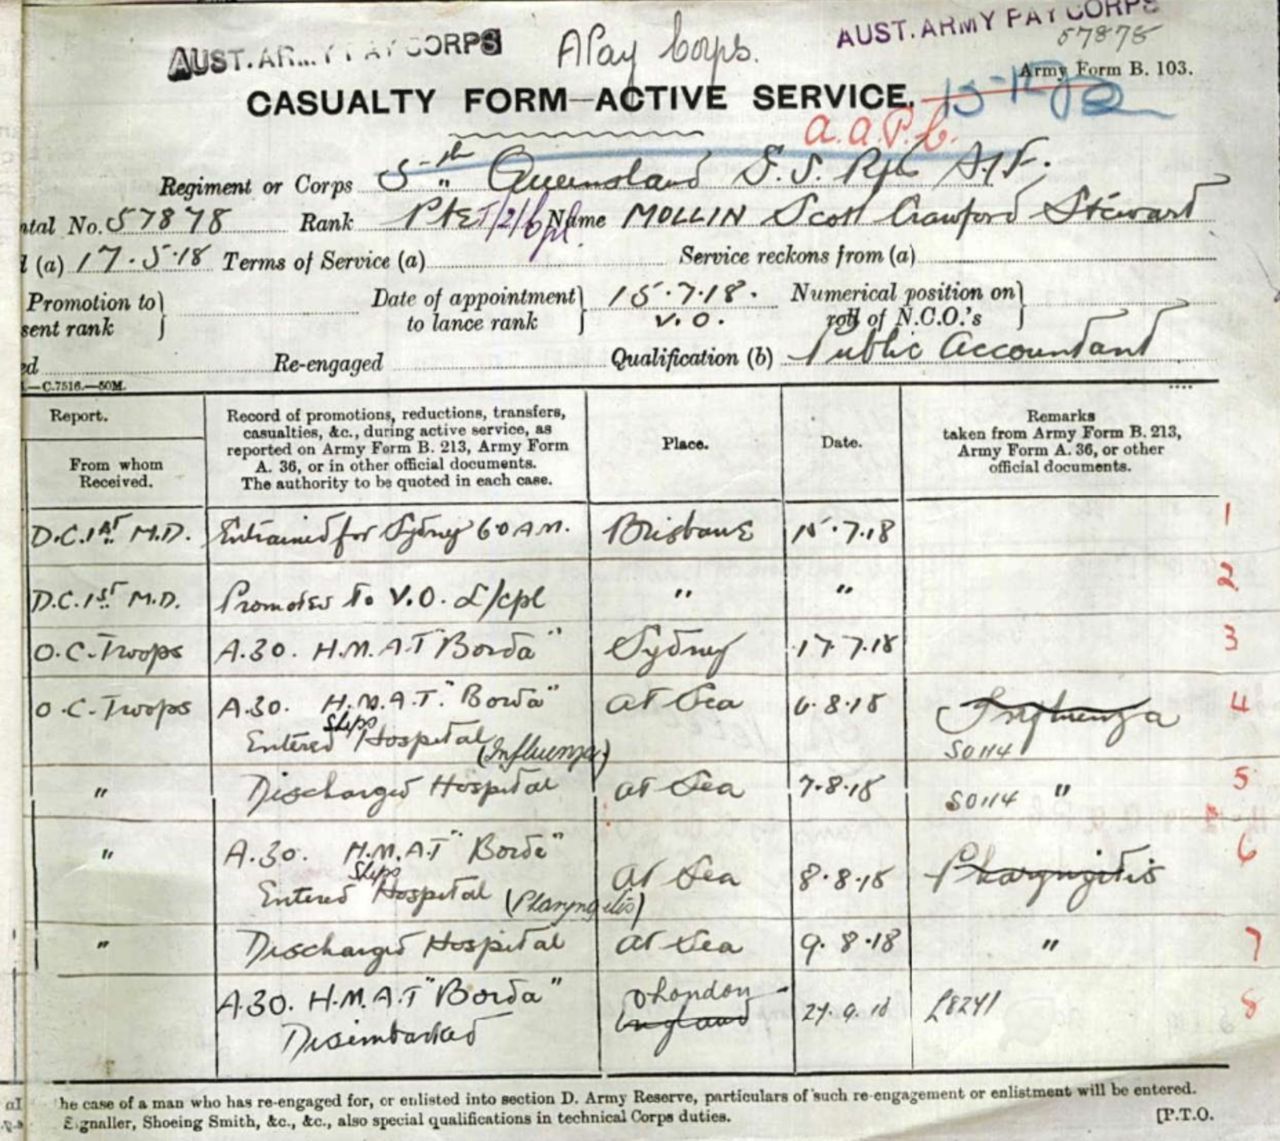 AUST. ARMY PAY CORPS
A Pay Corps.
AUST. ARMY PAY CORPS
57878
Army Form B. 103.
CASUALTY FORM—ACTIVE SERVICE.
A.A.P.C.
Regiment or Corps 5th Queensland A.I.F.
ntal No. 57878 Rank Pte T/2/Cpl Name MOLLIN Scott Crawford Steward
(a) 17.5.18 Terms of Service (a) Service reckons from (a)
Promotion to Date of appointment 15.7.18. Numerical position on
sent rank to lance rank V.O. roll of N.C.O.'s
ed Re-engaged Qualification (b) Public Accountant
—C.7516.—50M.
Report.
From whom Received.
Record of promotions, reductions, transfers,
casualties, &c., during active service, as
reported on Army Form B. 213, Army Form
A. 36, or in other official documents.
The authority to be quoted in each case.
Place.
Date.
Remarks
taken from Army Form B. 213,
Army Form A. 36, or other
official documents.
D.C. 1st M.D. Entrained for Sydney 6 0 A.M. Brisbane 15.7.18 1
D.C. 1st M.D. Promoted to V.O. L/cpl " " 2
O.C. Troops A.30. H.M.A.T "Borda" Sydney 17.7.18 3
O.C. Troops A.30. H.M.A.T. "Borda" at Sea 6.8.18 Influenza 4
Entered Ships Hospital (Influenza) S0114
" Discharged Hospital at Sea 7.8.18 S0114 " 5
" A.30. H.M.A.T "Borda" at Sea 8.8.18 Pharyngitis 6
Entered Ships Hospital (Pharyngitis)
" Discharged Hospital at Sea 9.8.18 " 7
A.30. H.M.A.T "Borda" London 8
Disembarked England
he case of a man who has re-engaged for, or enlisted into section D. Army Reserve, particulars of such re-engagement or enlistment will be entered.
Signaller, Shoeing Smith, &c., &c., also special qualifications in technical Corps duties. [P.T.O.